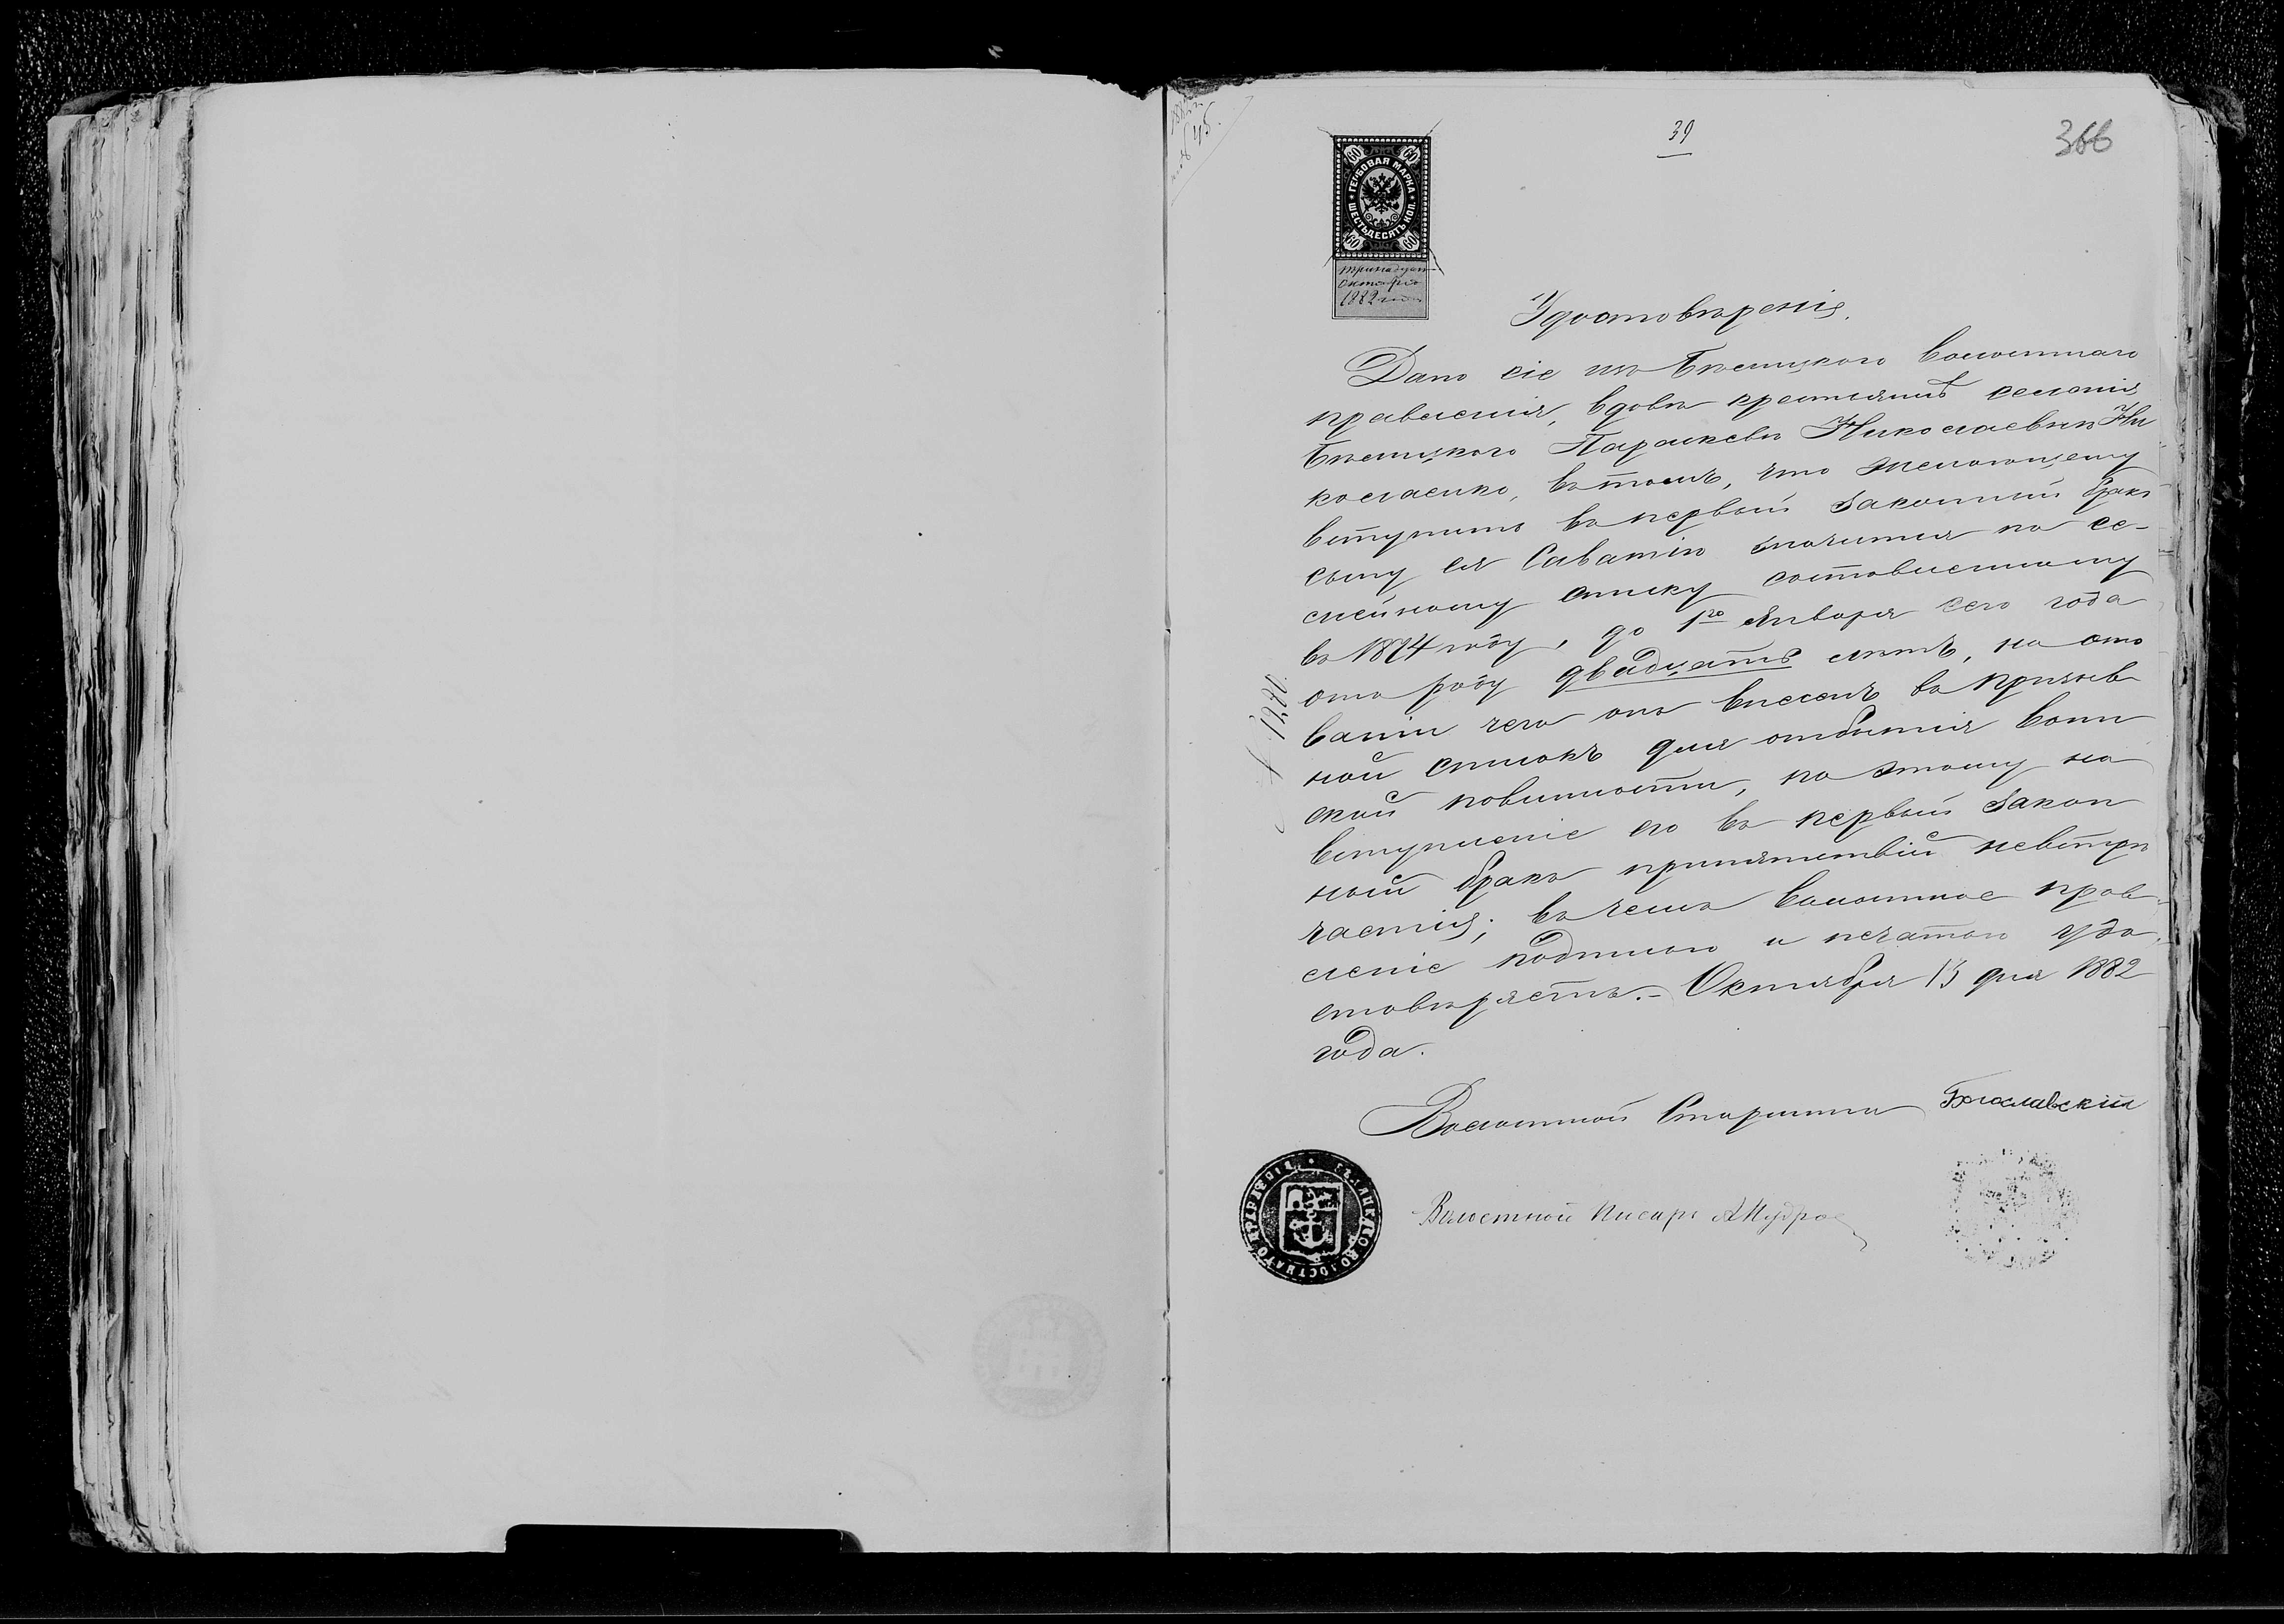 39
366
60 60
ГЕРБОВАЯ МАРКА
ШЕСТЬДЕСЯТЪ КОП.
60 60
тринадцат
октября
1882 года
Удостовѣреніе.
Дано сіе изъ Бѣлицкого волостнаго
правленія, вдовѣ крестьянкѣ селенія
Бѣлицкого Параскевѣ Николаевнѣ Ни
колаенко, въ томъ, что желающему
вступить въ первый законный бракъ
сыну ея Саватію значится по се-
мейному списку составленному
въ 1874 году, до 1го Января сего года
отъ роду двадцать лѣтъ, на осно
ваніи чего онъ внесенъ въ призыв
ной списокъ для отбытія воин
ской повинности, по этому на
вступленіе его въ первый закон
ный бракъ припятствій невстрѣ
чается; въ чемъ волостное прав
леніе подписью и печатью удо
стовѣряетъ.- Октября 13 дня 1882
года.
№ 1280.
Волостной Старшина Богославскій
Волостной Писарь А Мудрое